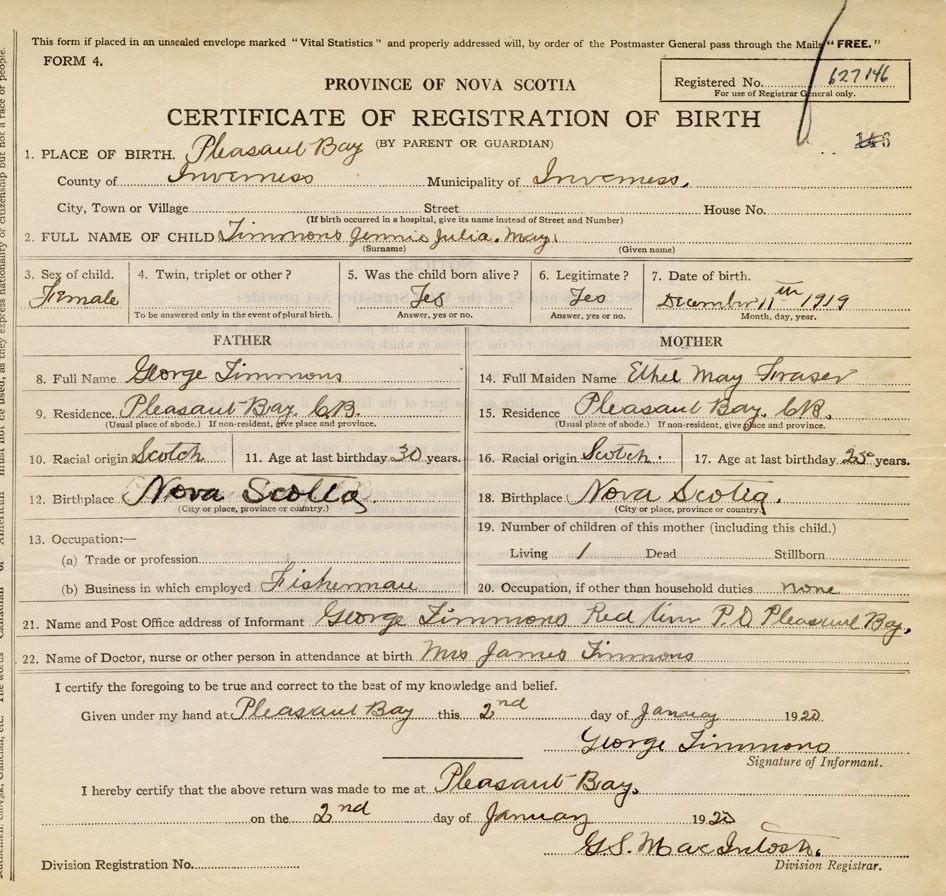 This form if placed in an unsealed envelope marked "Vital Statistics" and properly addressed will, by order of the Postmaster General pass through the Mails "FREE."
FORM 4.
PROVINCE OF NOVA SCOTIA
Registered No. 627146
For use of Registrar General only.
CERTIFICATE OF REGISTRATION OF BIRTH
(BY PARENT OR GUARDIAN)
1. PLACE OF BIRTH. Pleasant Bay
County of Inverness Municipality of Inverness.
City, Town or Village Street House No.
(If birth occurred in a hospital, give its name instead of Street and Number)
2. FULL NAME OF CHILD Timmons Jennie Julia. May.
(Surname) (Given name)
3. Sex of child. 4. Twin, triplet or other? 5. Was the child born alive? 6. Legitimate? 7. Date of birth.
Female Yes Yes December 11th 1919
To be answered only in the event of plural birth. Answer, yes or no. Answer, yes or no. Month, day, year.
FATHER
8. Full Name George Timmons
9. Residence. Pleasant Bay. C.B.
(Usual place of abode.) If non-resident, give place and province.
10. Racial origin Scotch 11. Age at last birthday 30 years.
12. Birthplace Nova Scotia
(City or place, province or country.)
13. Occupation:—
(a) Trade or profession
(b) Business in which employed Fisherman
MOTHER
14. Full Maiden Name Ethel May Fraser
15. Residence Pleasant Bay. C.B.
(Usual place of abode.) If non-resident, give place and province.
16. Racial origin Scotch. 17. Age at last birthday 25 years.
18. Birthplace Nova Scotia.
(City or place, province or country.)
19. Number of children of this mother (including this child.)
Living 1 Dead Stillborn
20. Occupation, if other than household duties none
21. Name and Post Office address of Informant George Timmons Red River P.O Pleasant Bay.
22. Name of Doctor, nurse or other person in attendance at birth Mrs James Timmons
I certify the foregoing to be true and correct to the best of my knowledge and belief.
Given under my hand at Pleasant Bay this 2nd day of January 1920
George Timmons
Signature of Informant.
I hereby certify that the above return was made to me at Pleasant Bay.
on the 2nd day of January 1920
G.S. MacIntosh.
Division Registration No. Division Registrar.